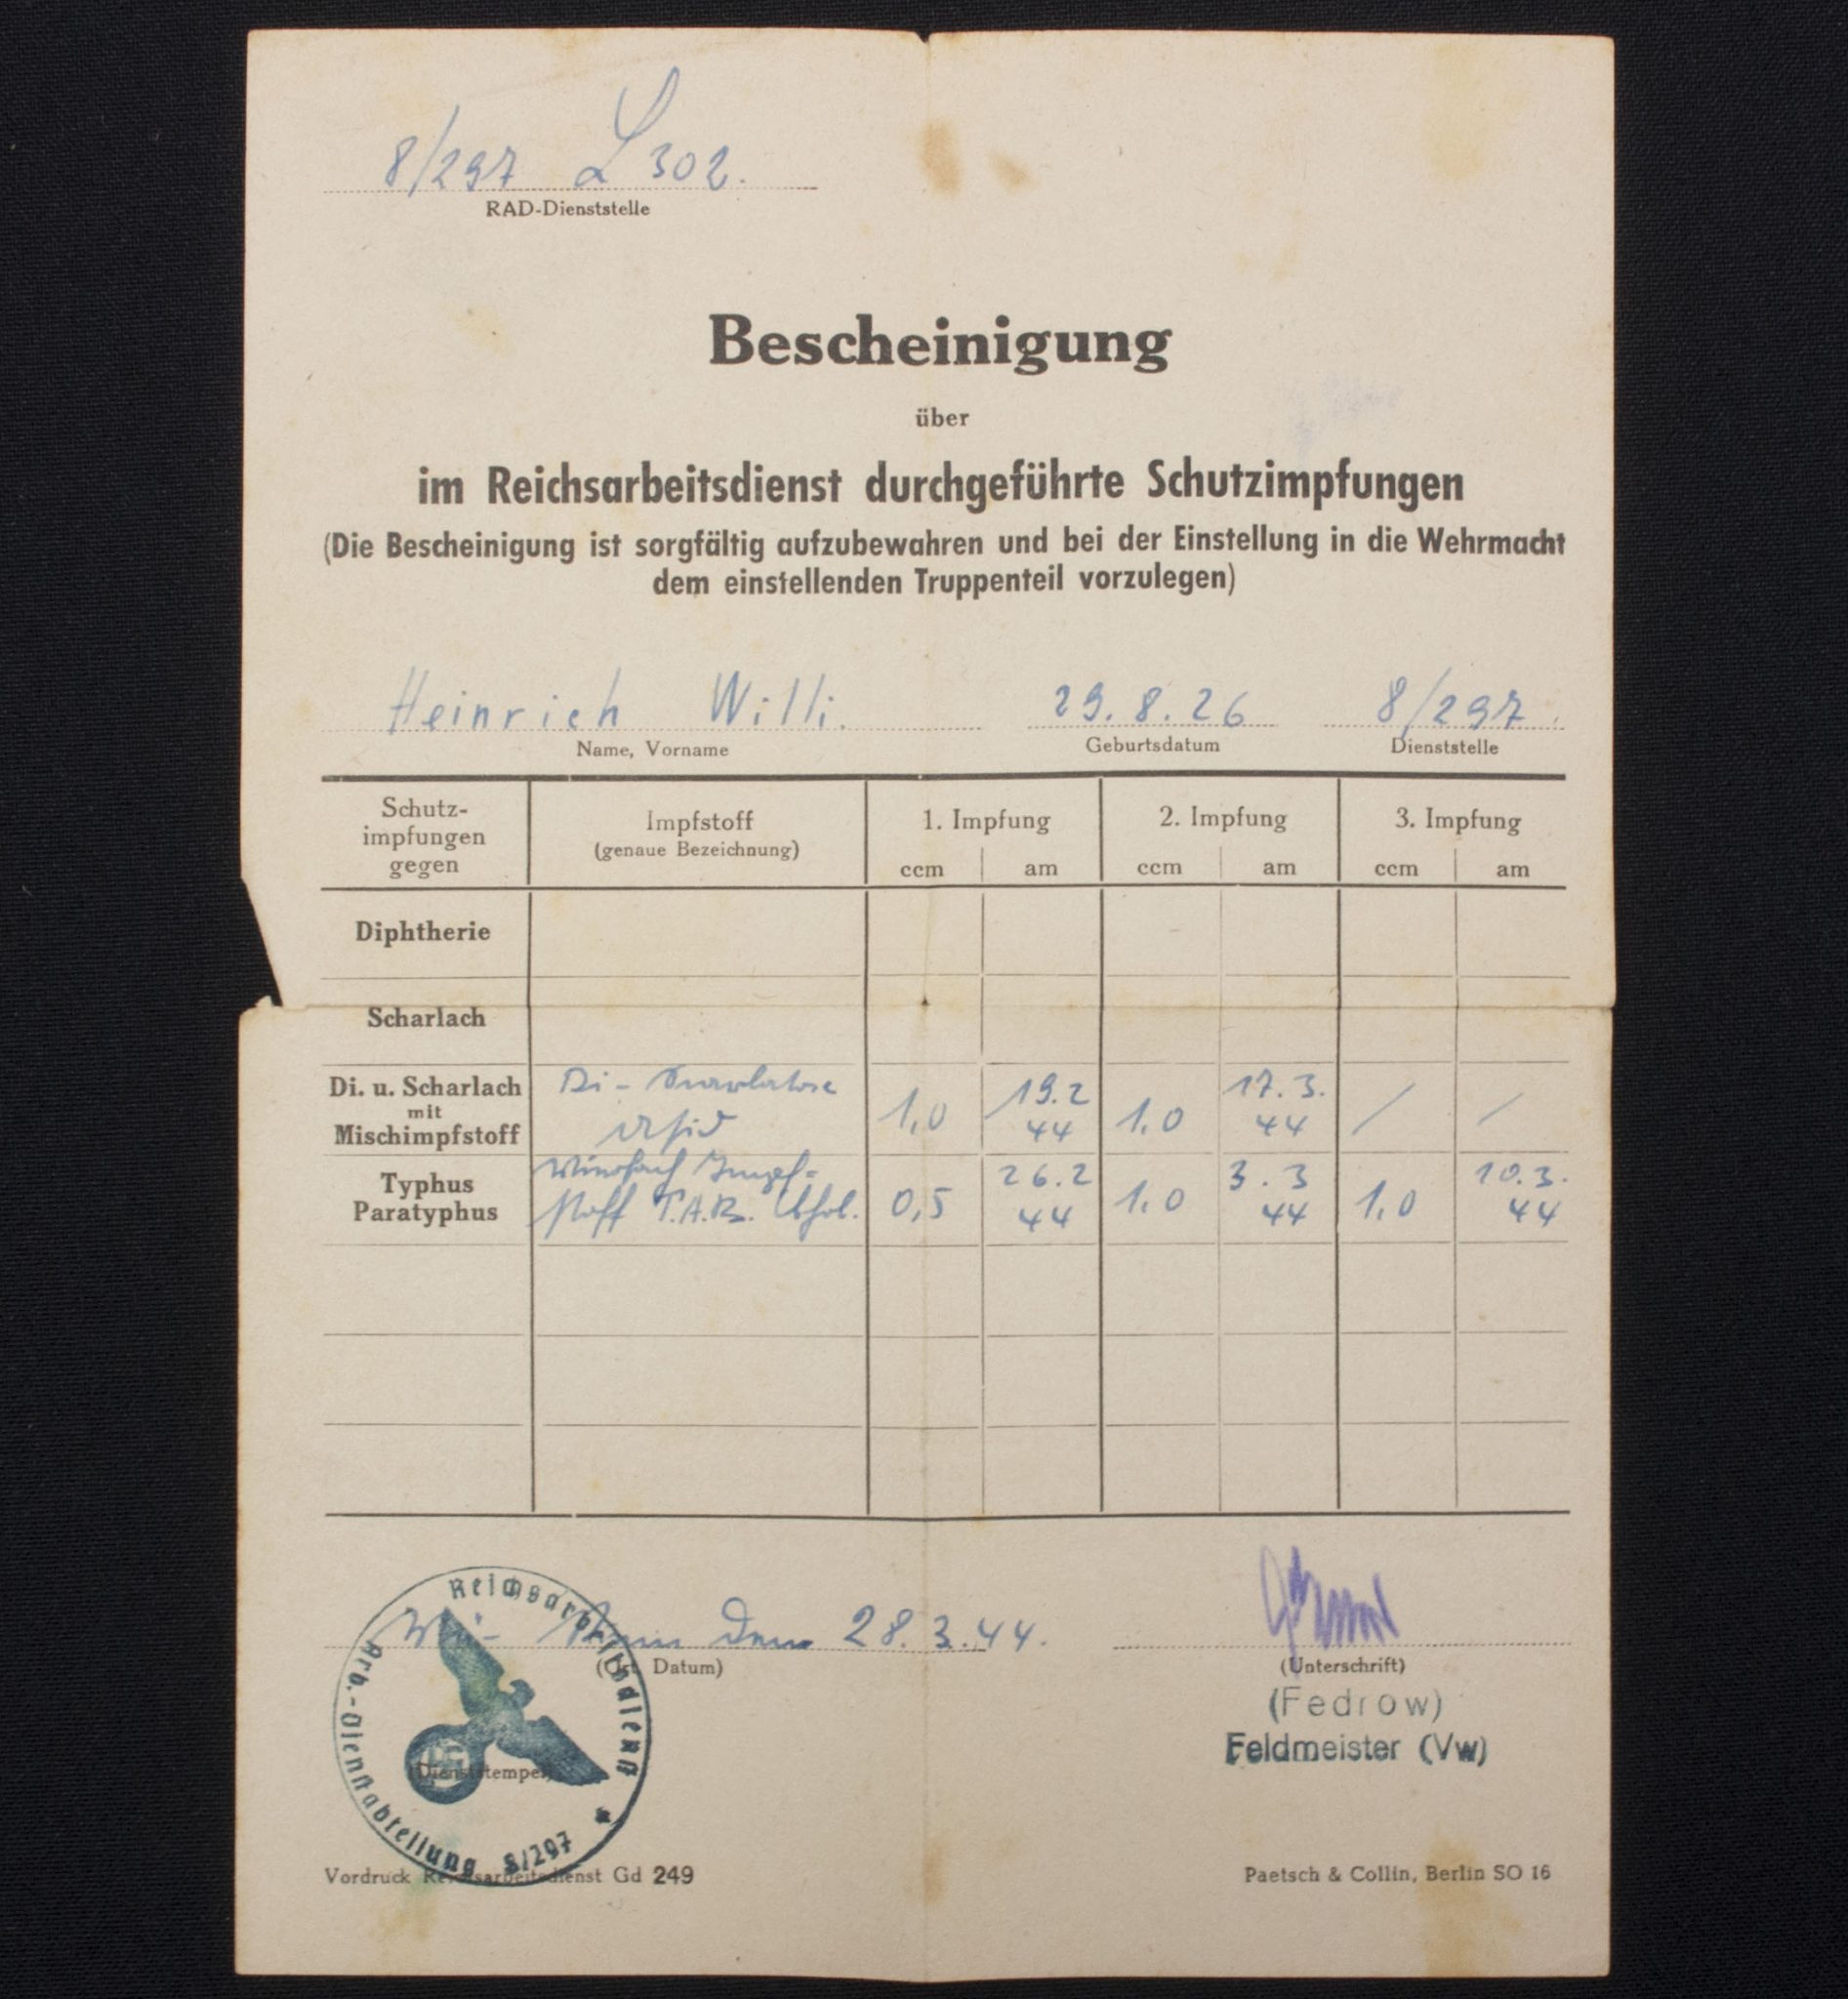 8/297 L 302.
RAD-Dienststelle
Bescheinigung
über
im Reichsarbeitsdienst durchgeführte Schutzimpfungen
(Die Bescheinigung ist sorgfältig aufzubewahren und bei der Einstellung in die Wehrmacht
dem einstellenden Truppenteil vorzulegen)
Heinrich Willi. 29.8.26 8/297.
Name, Vorname Geburtsdatum Dienststelle
Schutz-
impfungen
gegen
Impfstoff
(genaue Bezeichnung)
1. Impfung 2. Impfung 3. Impfung
ccm am ccm am ccm am
Diphtherie
Scharlach
Di. u. Scharlach
mit
Mischimpfstoff
Di-
Asid
1,0 19.2 44 1,0 17.3. 44 / /
Typhus
Paratyphus
Impf=
stoff T.A.B.
0,5 26.2 44 1,0 3.3 44 1,0 10.3. 44
den 28.3.44.
(Ort, Datum) (Unterschrift)
(Fedrow)
Feldmeister (Vw)
(Dienststempel)
Reichsarbeitsdienst
Arb.-Dienstabteilung 8/297
Vordruck Reichsarbeitsdienst Gd 249
Paetsch & Collin, Berlin SO 16